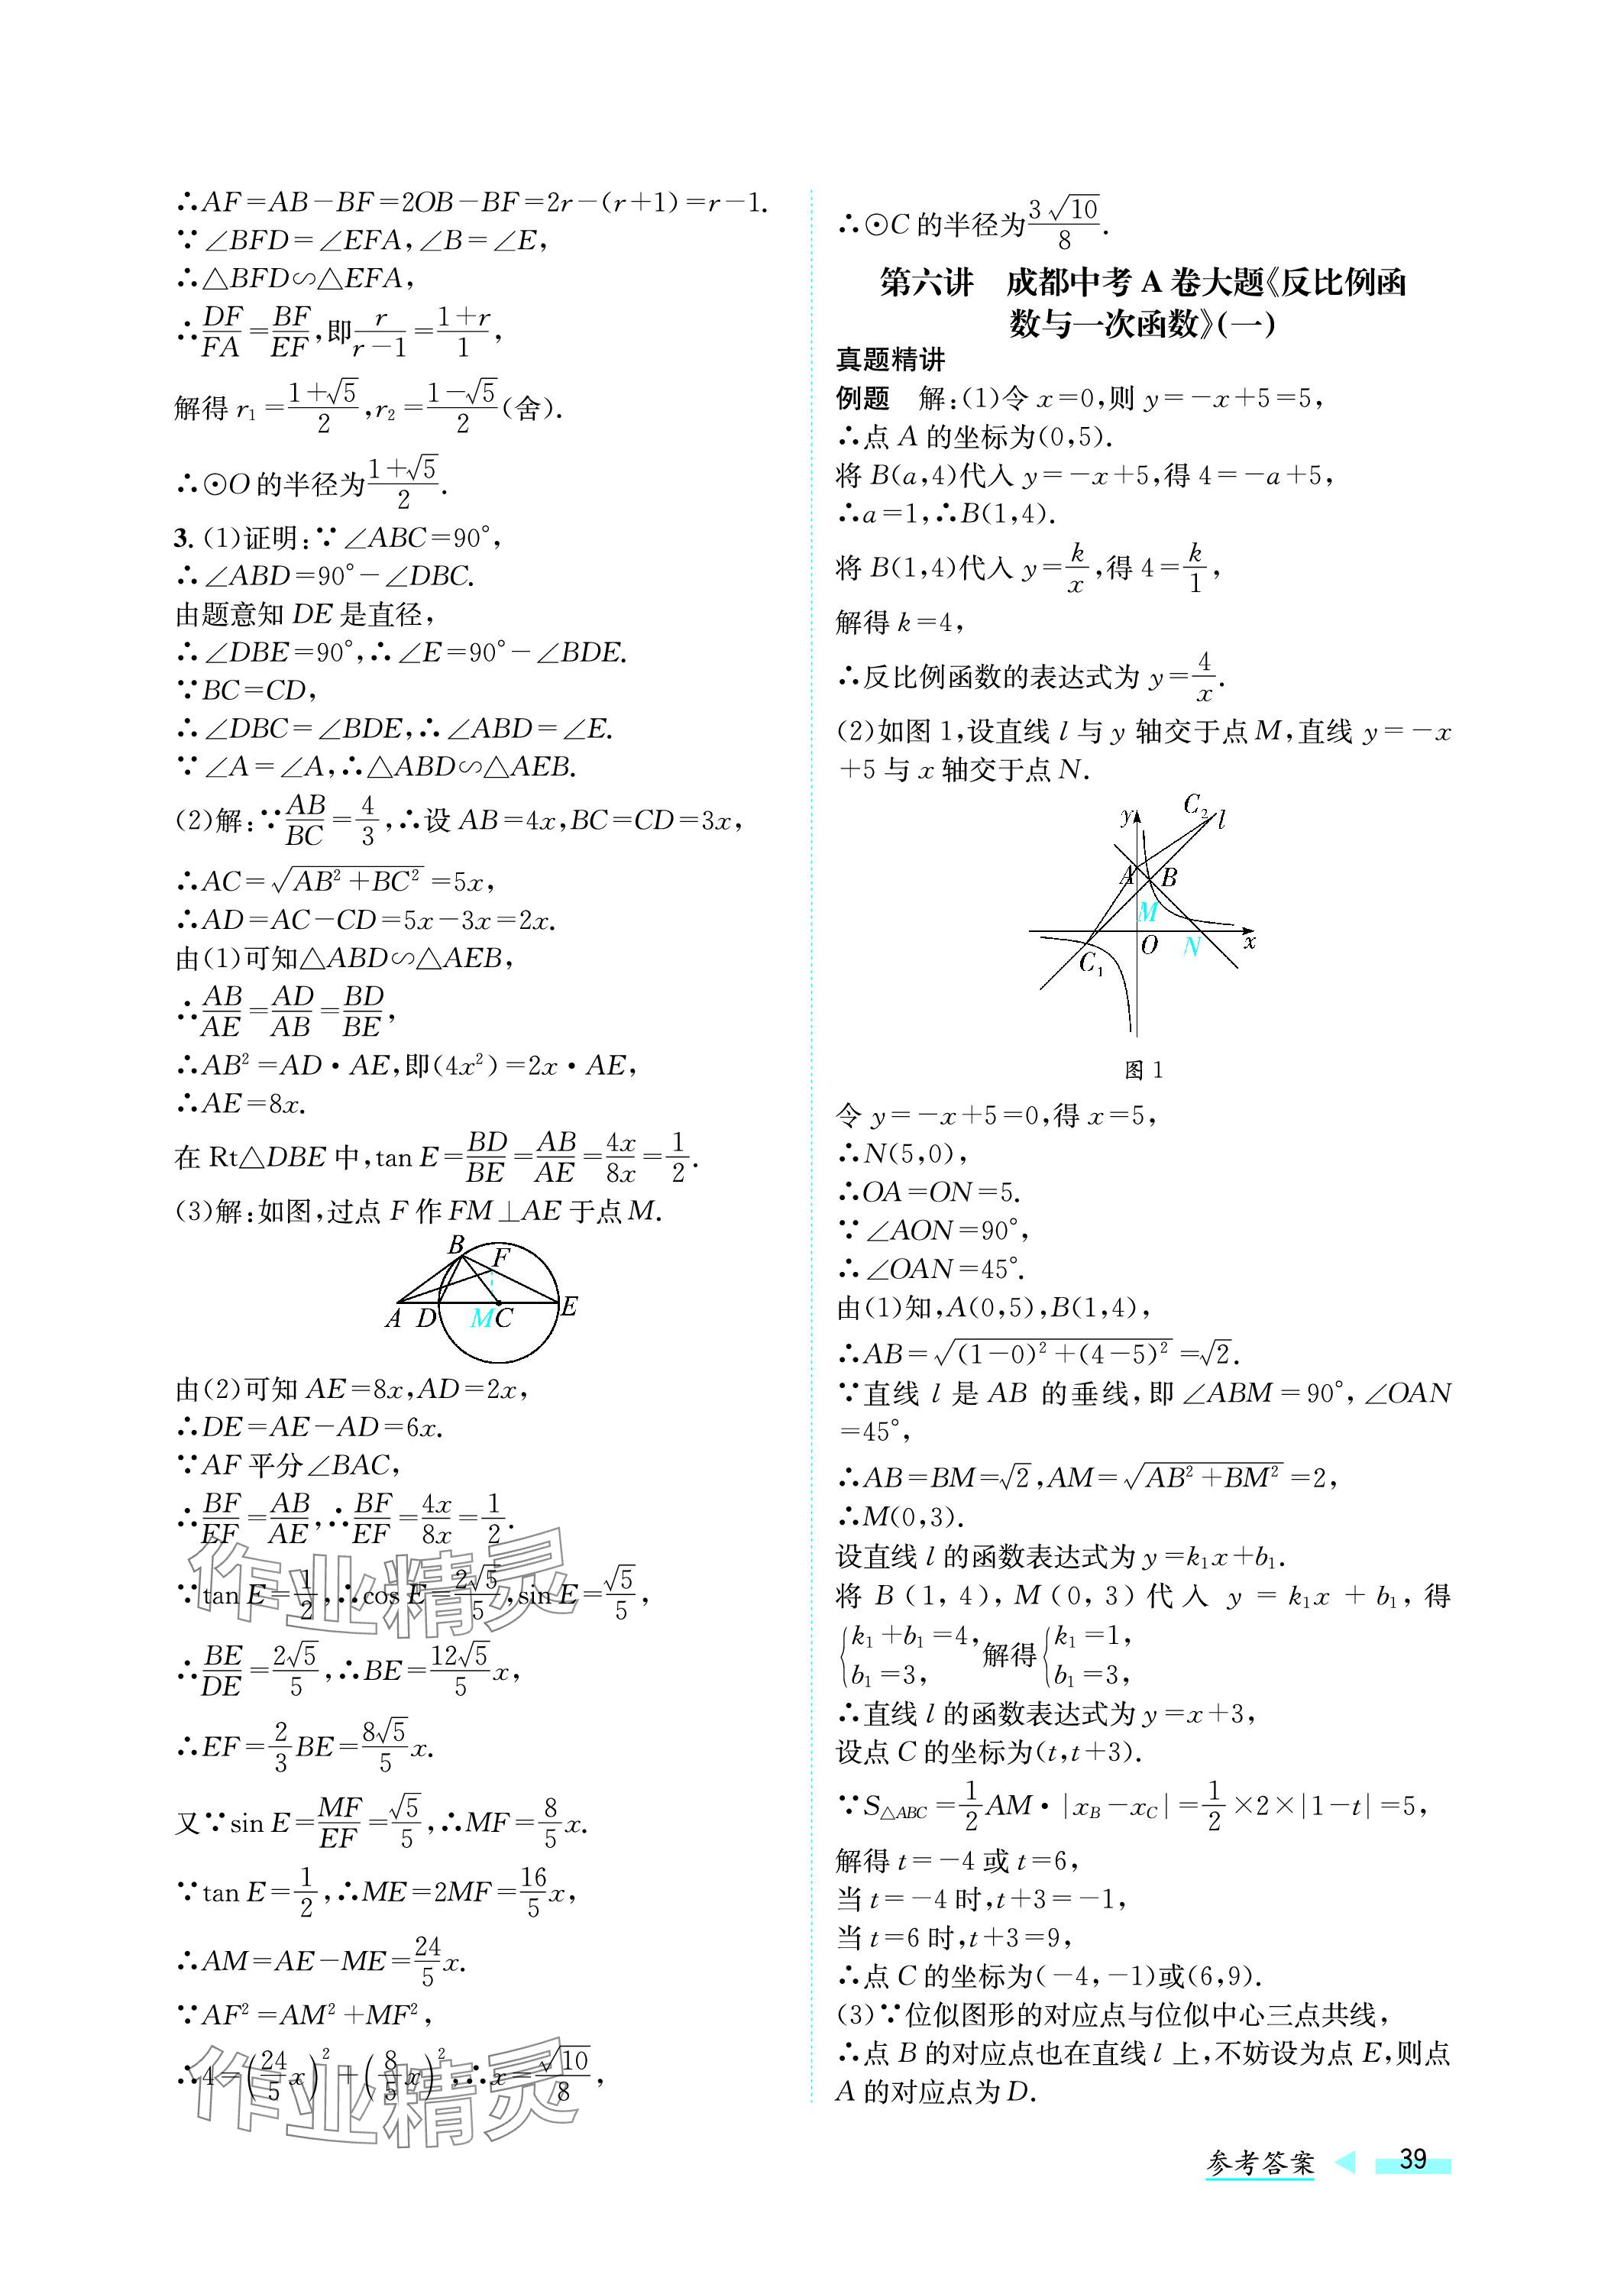 ∴AF=AB-BF=2OB-BF=2r-(r+1)=r-1.
∵∠BFD=∠EFA,∠B=∠E,
∴△BFD∽△EFA,
∴DF/FA=BF/EF,即r/(r-1)=(1+r)/1,
解得 r₁=(1+√5)/2,r₂=(1-√5)/2(舍).
∴⊙O 的半径为(1+√5)/2.
3. (1)证明:∵∠ABC=90°,
∴∠ABD=90°-∠DBC.
由题意知 DE 是直径,
∴∠DBE=90°,∴∠E=90°-∠BDE.
∵BC=CD,
∴∠DBC=∠BDE,∴∠ABD=∠E.
∵∠A=∠A,∴△ABD∽△AEB.
(2)解:∵AB/BC=4/3,∴设 AB=4x,BC=CD=3x,
∴AC=√(AB²+BC²)=5x,
∴AD=AC-CD=5x-3x=2x.
由(1)可知△ABD∽△AEB,
∴AB/AE=AD/AB=BD/BE,
∴AB²=AD·AE,即(4x²)=2x·AE,
∴AE=8x.
在 Rt△DBE 中,tan E=BD/BE=AB/AE=4x/8x=1/2.
(3)解:如图,过点 F 作 FM⊥AE 于点 M.
B F
A D M C E
由(2)可知 AE=8x,AD=2x,
∴DE=AE-AD=6x.
∵AF 平分∠BAC,
∴BF/EF=AB/AE,∴BF/EF=4x/8x=1/2.
∵tan E=1/2,∴cos E=2√5/5,sin E=√5/5,
∴BE/DE=2√5/5,∴BE=12√5/5 x,
∴EF=2/3 BE=8√5/5 x.
又∵sin E=MF/EF=√5/5,∴MF=8/5 x.
∵tan E=1/2,∴ME=2MF=16/5 x,
∴AM=AE-ME=24/5 x.
∵AF²=AM²+MF²,
∴4=(24/5 x)²+(8/5 x)²,∴x=√10/8,
作业精灵
作业精灵
∴⊙C 的半径为3√10/8.
第六讲 成都中考 A 卷大题《反比例函
数与一次函数》(一)
真题精讲
例题 解:(1)令 x=0,则 y=-x+5=5,
∴点 A 的坐标为(0,5).
将 B(a,4)代入 y=-x+5,得 4=-a+5,
∴a=1,∴B(1,4).
将 B(1,4)代入 y=k/x,得 4=k/1,
解得 k=4,
∴反比例函数的表达式为 y=4/x.
(2)如图 1,设直线 l 与 y 轴交于点 M,直线 y=-x
+5 与 x 轴交于点 N.
y C₂ l
A B
M
O N x
C₁
图 1
令 y=-x+5=0,得 x=5,
∴N(5,0),
∴OA=ON=5.
∵∠AON=90°,
∴∠OAN=45°.
由(1)知,A(0,5),B(1,4),
∴AB=√((1-0)²+(4-5)²)=√2.
∵直线 l 是 AB 的垂线,即∠ABM=90°,∠OAN
=45°,
∴AB=BM=√2,AM=√(AB²+BM²)=2,
∴M(0,3).
设直线 l 的函数表达式为 y=k₁x+b₁.
将 B(1,4),M(0,3)代入 y=k₁x+b₁,得
{k₁+b₁=4, b₁=3, 解得{k₁=1, b₁=3,
∴直线 l 的函数表达式为 y=x+3,
设点 C 的坐标为(t,t+3).
∵S△ABC=1/2 AM·|x_B-x_C|=1/2×2×|1-t|=5,
解得 t=-4 或 t=6,
当 t=-4 时,t+3=-1,
当 t=6 时,t+3=9,
∴点 C 的坐标为(-4,-1)或(6,9).
(3)∵位似图形的对应点与位似中心三点共线,
∴点 B 的对应点也在直线 l 上,不妨设为点 E,则点
A 的对应点为 D.
参考答案 39